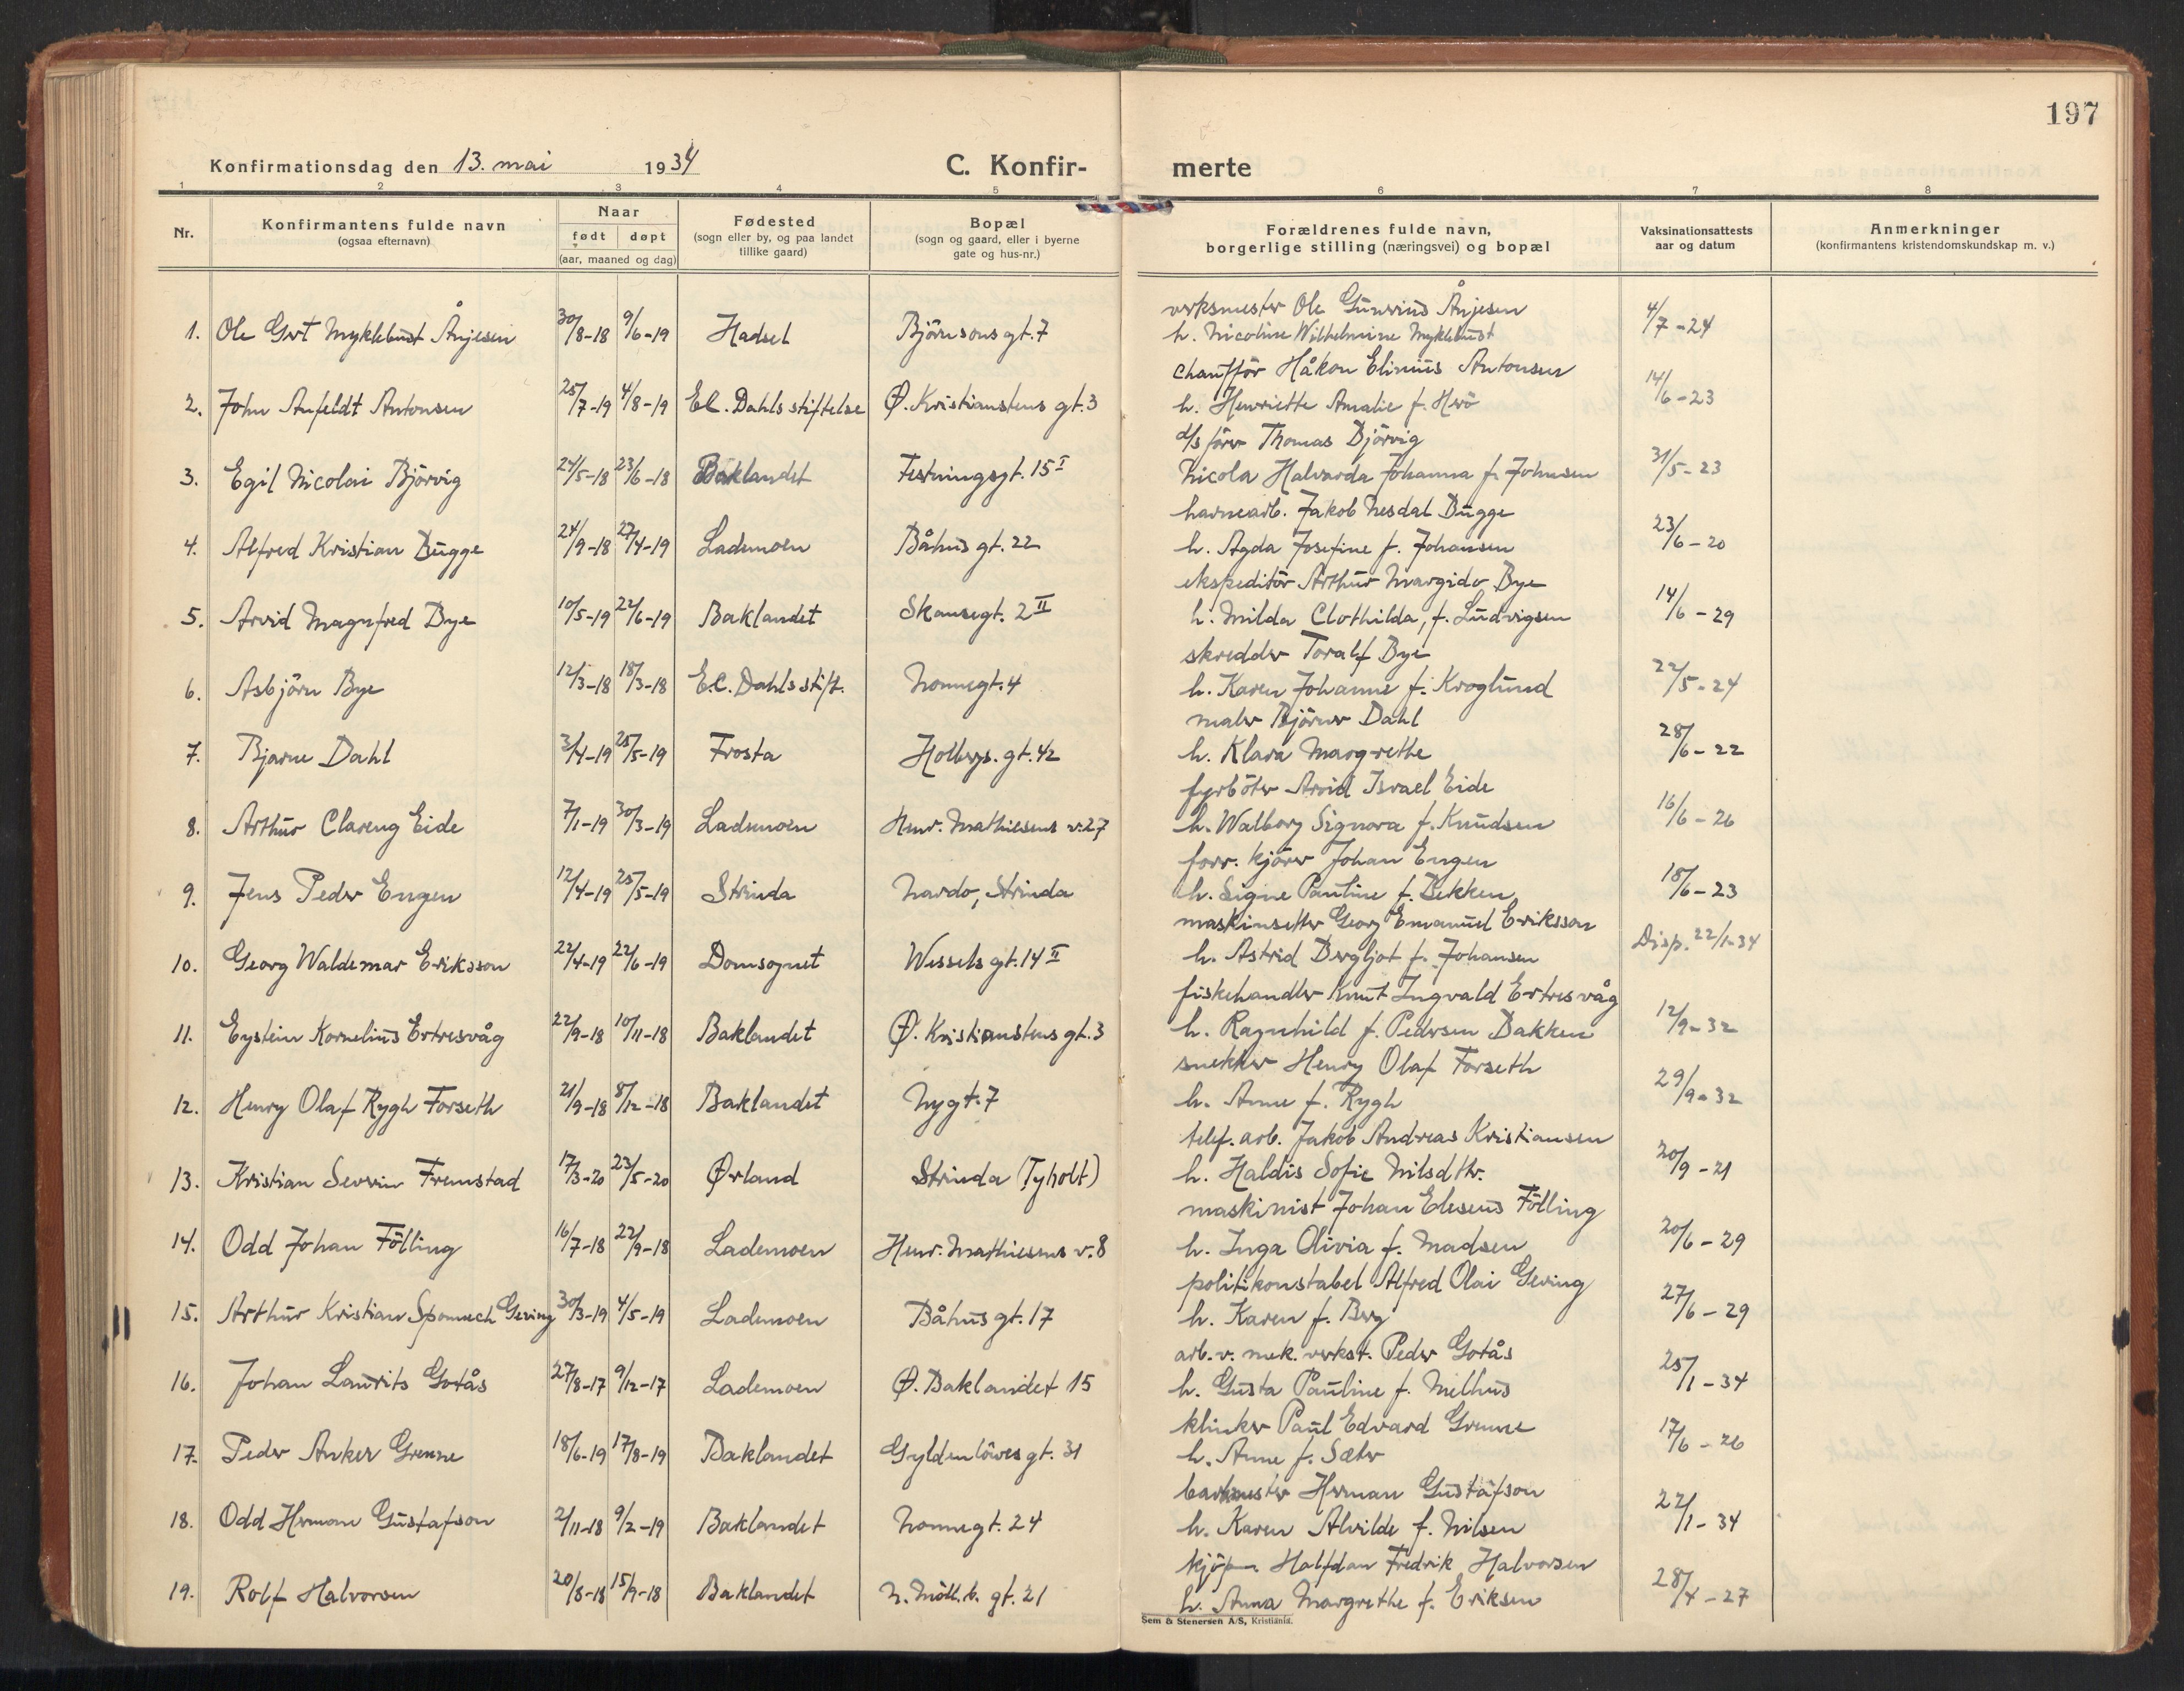 197
Konfirmationsdag den 13. mai 1934
C. Konfir- merte
1 2 3 4 5 6 7 8
Nr.
Konfirmantens fulde navn
(ogsaa efternavn)
Naar
født døpt
(aar, maaned og dag)
Fødested
(sogn eller by, og paa landet
tillike gaard)
Bopæl
(sogn og gaard, eller i byerne
gate og hus-nr.)
Forældrenes fulde navn,
borgerlige stilling (næringsvei) og bopæl
Vaksinationsattests
aar og datum
Anmerkninger
(konfirmantens kristendomskundskap m. v.)
verksmester Ole Gunerius Ånjesen
1. Ole Gert Myklebust Ånjesen 30/8-18 9/6-19 Hadsel Björnsons gt. 7 h. Nicoline Wilhelmine Myklebust 4/7-24
chaufför Håkon Elinius Antonsen
2. John Anfeldt Antonsen 25/7-19 4/8-19 E.C. Dahls stiftelse Ø. Kristianstens gt. 3 h. Henriette Amalie f. Herö 14/6-23
d/s förer Thomas Björvig
3. Egil Nicolai Björvig 24/5-18 23/6-18 Baklandet Festningsgt. 15 I Nicola Halvarda Johanna f. Johnsen 31/5-23
havnearb. Jakob Nesdal Bugge
4. Alfred Kristian Bugge 24/9-18 27/4-19 Lademoen Båhus gt. 22 h. Agda Josefine f. Johansen 23/6-20
ekspeditör Arthur Margido Bye
5. Arvid Magnfred Bye 10/5-19 22/6-19 Baklandet Skansegt. 2 II h. Milda Clothilda, f. Ludvigsen 14/6-29
skredder Toralf Bye
6. Asbjörn Bye 12/3-18 18/3-18 E.C. Dahls stift. Nonnegt. 4 h. Karen Johanne f. Kroglund 22/5-24
maler Björner Dahl
7. Bjarne Dahl 3/4-19 25/5-19 Frosta Holbergs. gt. 42 h. Klara Margrethe 28/6-22
fyrböter Arvid Israel Eide
8. Arthur Clareng Eide 7/1-19 30/3-19 Lademoen Henr. Mathiesens v. 27 h. Walborg Signora f. Knudsen 16/6-26
forr. kjörer Johan Engen
9. Jens Peder Engen 12/4-19 25/5-19 Strinda Nardo, Strinda h. Signe Pauline f. Bekken 18/6-23
maskinsetter Georg Emanuel Eriksson
10. Georg Waldemar Eriksson 22/4-19 22/6-19 Domsognet Wessels gt. 14 II h. Astrid Bergljot f. Johansen Disp. 22/1-34
fiskehandler Knut Ingvald Ertresvåg
11. Eystein Kornelius Ertresvåg 22/9-18 10/11-18 Baklandet Ø. Kristianstens gt. 3 h. Ragnhild f. Pedersen Bakken 12/9-32
snekker Henry Olaf Forseth
12. Henry Olaf Rygh Forseth 21/9-18 8/12-18 Baklandet Nygt. 7 h. Anne f. Rygh 29/9-32
telef. arb. Jakob Andreas Kristiansen
13. Kristian Severin Fremstad 17/3-20 23/5-20 Ørland Strinda (Tyholt) h. Haldis Sofie Nilsdtr. 20/9-21
maskinist Johan Eleseus Fölling
14. Odd Johan Fölling 16/7-18 22/9-18 Lademoen Henr. Mathiesens v. 8 h. Inga Olivia f. Madsen 20/6-29
politikonstabel Alfred Olai Geving
15. Arthur Kristian Geving 30/3-19 4/5-19 Lademoen Båhus gt. 17 h. Karen f. Berg 27/6-29
arb. v. mek. verkst. Peder Gotås
16. Johan Laurits Gotås 27/8-17 9/12-17 Lademoen Ø. Baklandet 15 h. Gusta Pauline f. Melhus 25/1-34
klinker Paul Edvard Grenne
17. Peder Anker Grenne 18/6-19 17/8-19 Baklandet Gyldenlöves gt. 31 h. Anne f. Sæter 17/6-26
Herman Gustafson
18. Odd Herman Gustafson 2/11-18 9/2-19 Baklandet Nonnegt. 24 h. Karen Alvilde f. Nilsen 22/1-34
Halfdan Fredrik Halvorsen
19. Rolf Halvorsen 20/8-18 15/9-18 Baklandet N. Möll.b. gt. 21 h. Anna Margrethe f. Eriksen 28/4-27
Sem & Stenersen A/S, Kristiania.